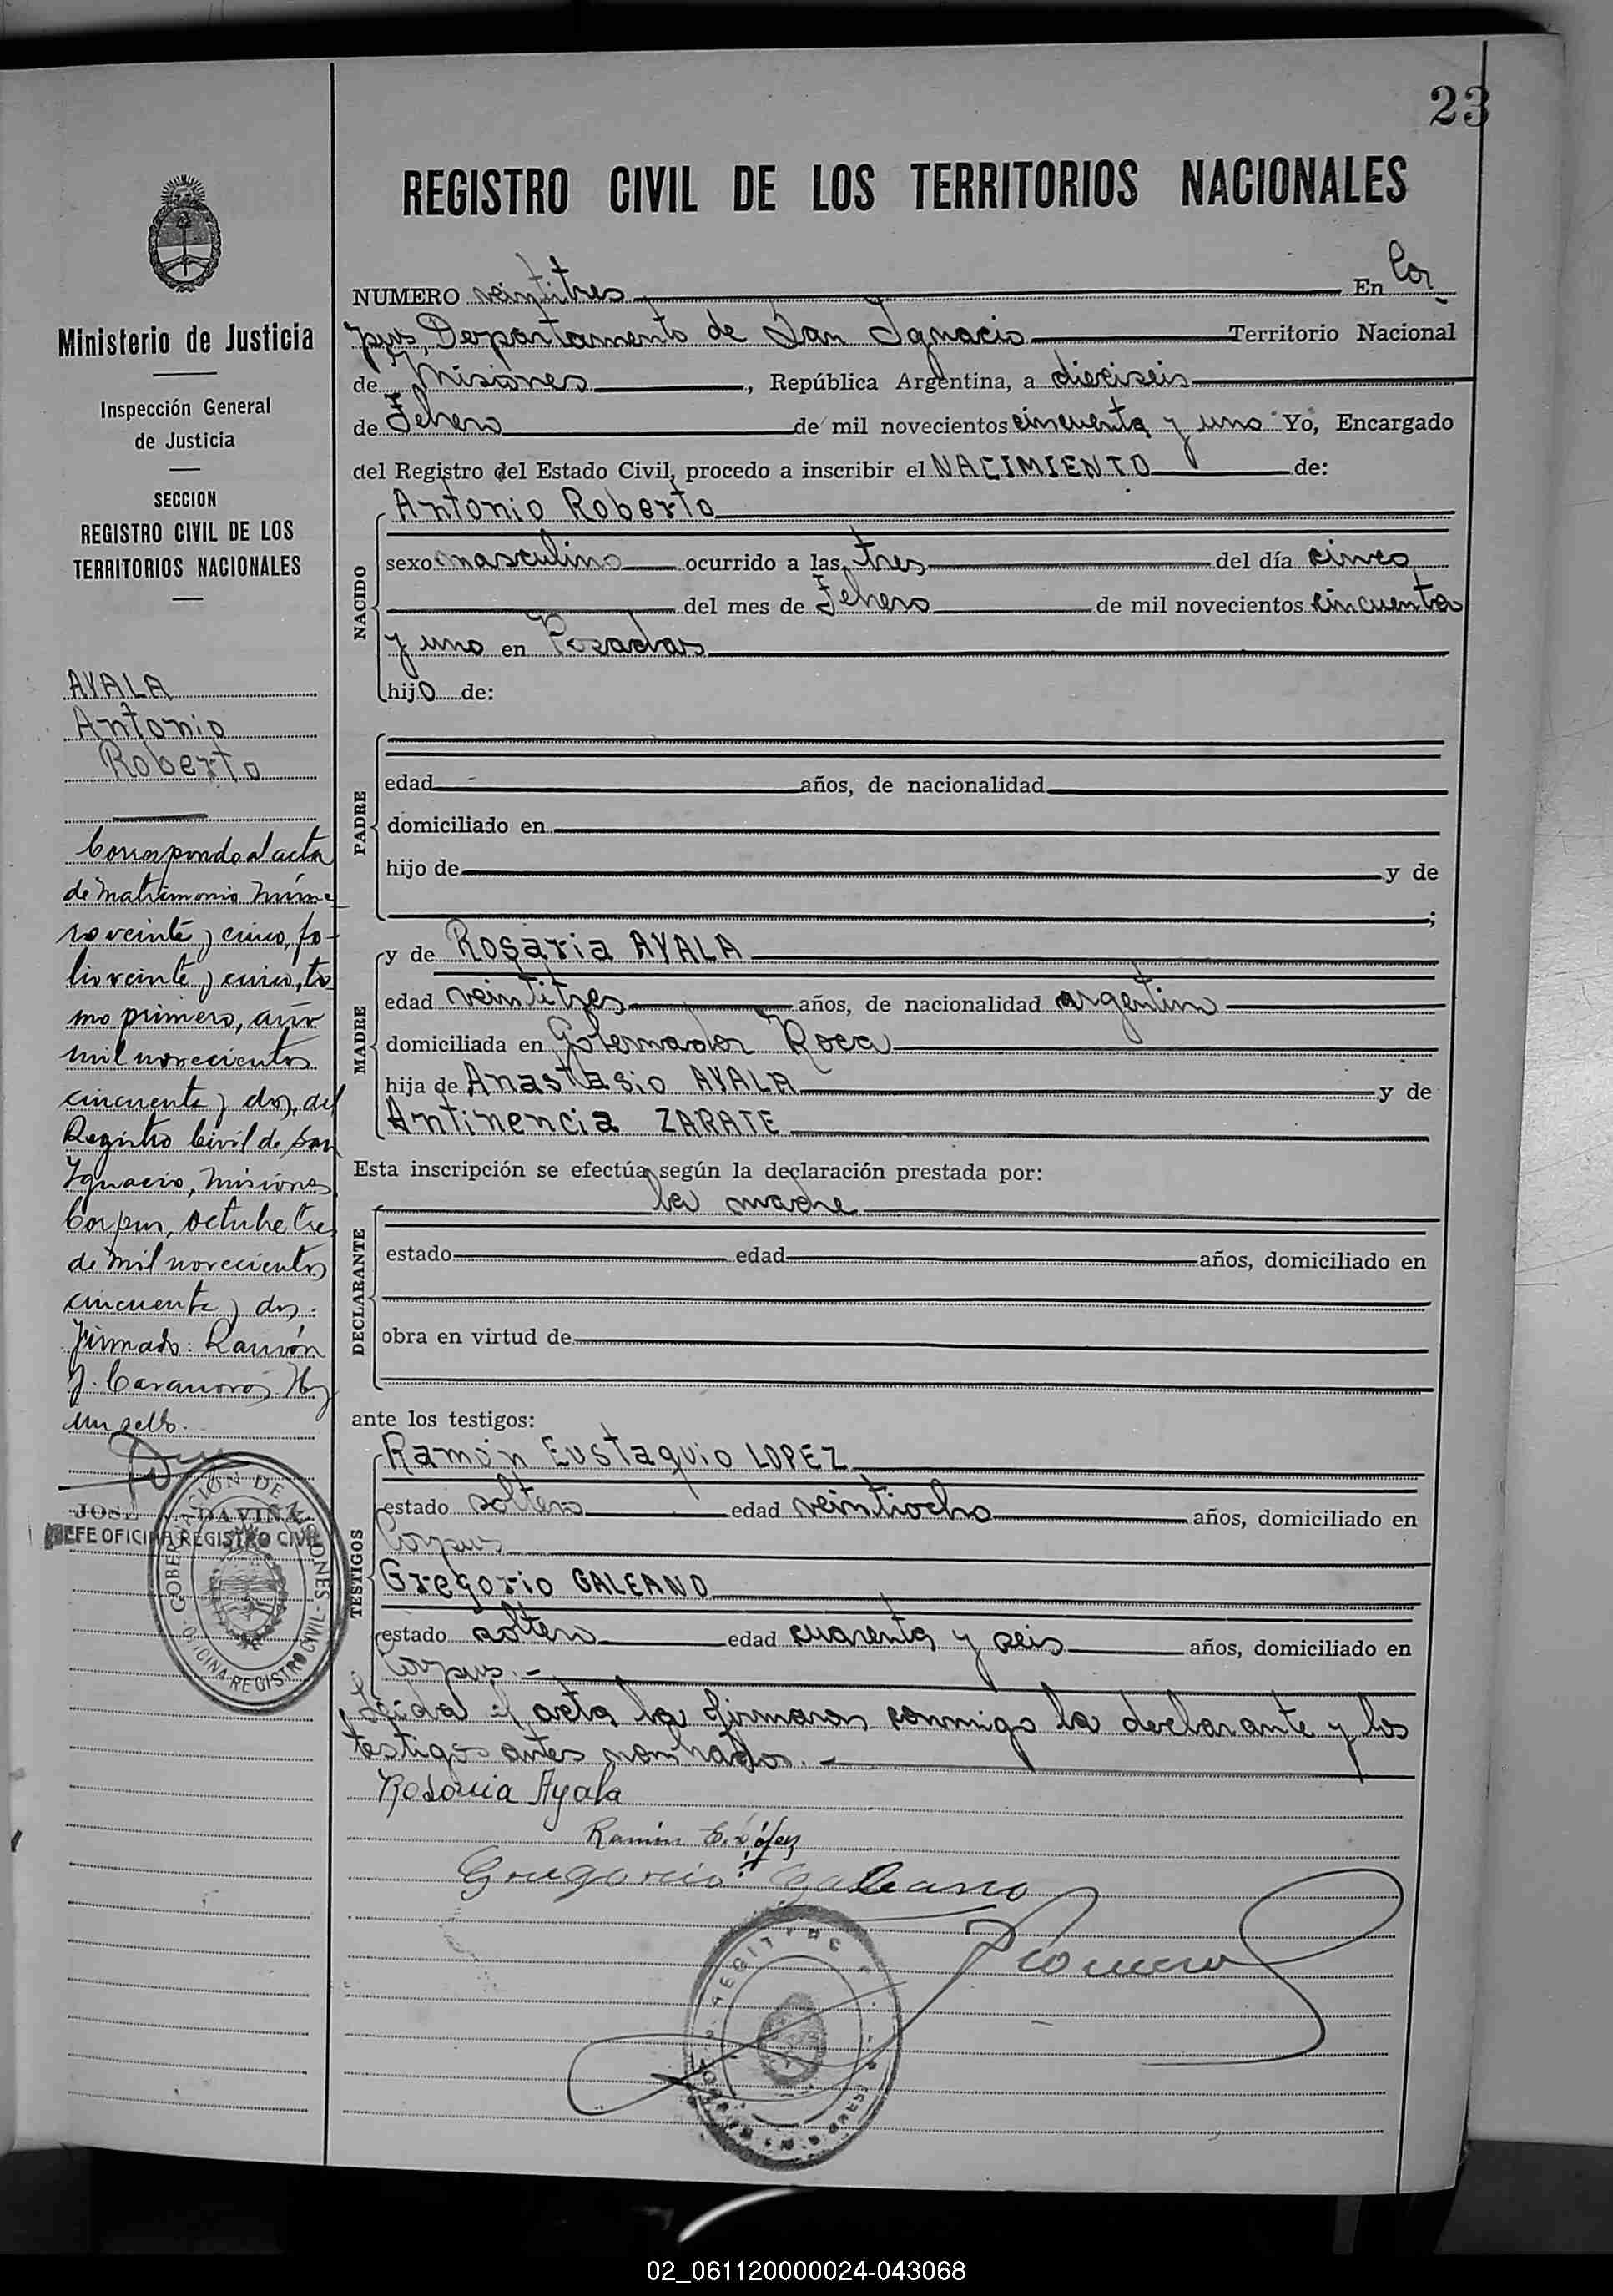 23
REGISTRO CIVIL DE LOS TERRITORIOS NACIONALES
NUMERO veintitres En Cor
pus, Departamento de San Ignacio Territorio Nacional
de Misiones, República Argentina, a dieciseis
de Febrero de mil novecientos cincuenta y uno Yo, Encargado
del Registro del Estado Civil, procedo a inscribir el NACIMIENTO de:
NACIDO
Antonio Roberto
sexo masculino ocurrido a las tres del día cinco
del mes de Febrero de mil novecientos cincuenta
y uno en Posadas
hijo de:
PADRE
edad años, de nacionalidad
domiciliado en
hijo de y de
;
MADRE
y de Rosaria AYALA
edad veintitres años, de nacionalidad argentina
domiciliada en Gobernador Roca
hija de Anastasio AYALA y de
Antinencia ZARATE
Esta inscripción se efectúa según la declaración prestada por:
DECLARANTE
la madre
estado edad años, domiciliado en
obra en virtud de
ante los testigos:
TESTIGOS
Ramón Eustaquio LOPEZ
estado soltero edad veintiocho años, domiciliado en
Corpus
Gregorio GALEANO
estado soltero edad cuarenta y seis años, domiciliado en
Corpus.-
Leida el acta la firmaron conmigo la declarante y los
testigos antes nombrados.-
Rosaria Ayala
Ramón E. López
Gregorio Galeano
Romero
Ministerio de Justicia
Inspección General
de Justicia
SECCION
REGISTRO CIVIL DE LOS
TERRITORIOS NACIONALES
AYALA
Antonio
Roberto
Corresponde al acta
de matrimonio núme-
ro veinte y cinco, fo-
lio veinte y cinco, to
mo primero, año
mil novecientos
cincuenta y dos, del
Registro Civil de San
Ignacio, Misiones
Corpus, octubre tres
de mil novecientos
cincuenta y dos.
Firmado: Ramón
J. Casanova. Hay
un sello.
JOSE DAVIÑA
JEFE OFICINA REGISTRO CIVIL
GOBERNACIÓN DE MISIONES - OFICINA REGISTRO CIVIL
02_061120000024-043068